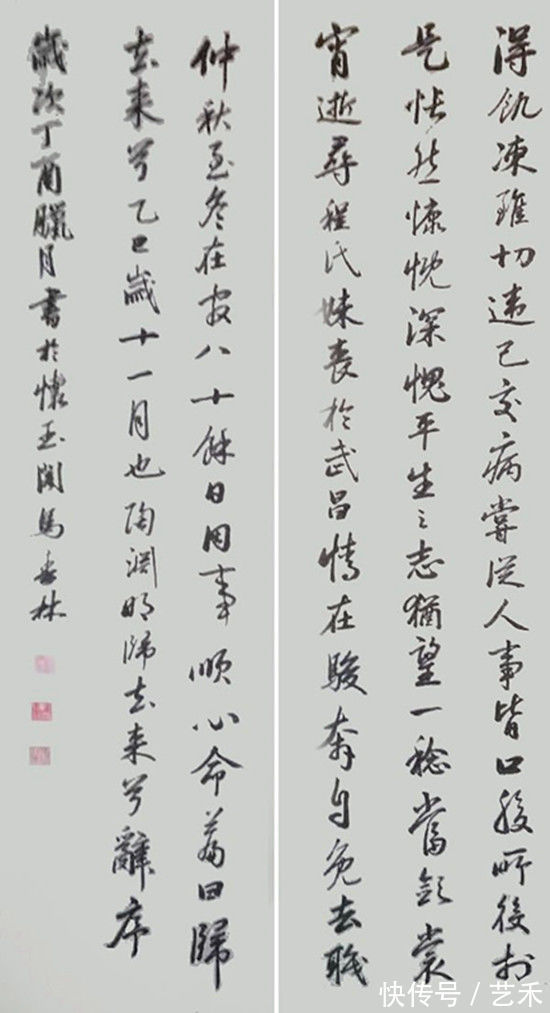 得飢凍雖切違己交病嘗從人事皆口腹所役於
是悵然慷慨深愧平生之志猶望一稔當斂裳
宵逝尋程氏妹喪於武昌情在駿奔自免去職
仲秋至冬在官八十餘日因事順心命篇曰歸
去來兮乙巳歲十一月也陶淵明歸去來兮辭序
歲次丁酉臘月書於懷玉閣馬春林
快传号/艺禾